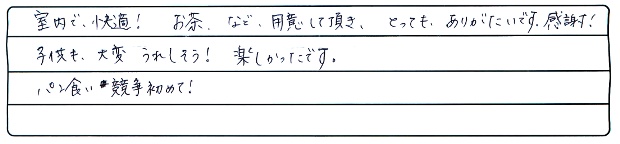 室内で、快適！ お茶、など、用意して頂き、とっても、ありがたいです。感謝す！
子供も、大変 うれしそう！ 楽しかったです。
パン食い競争初めて！